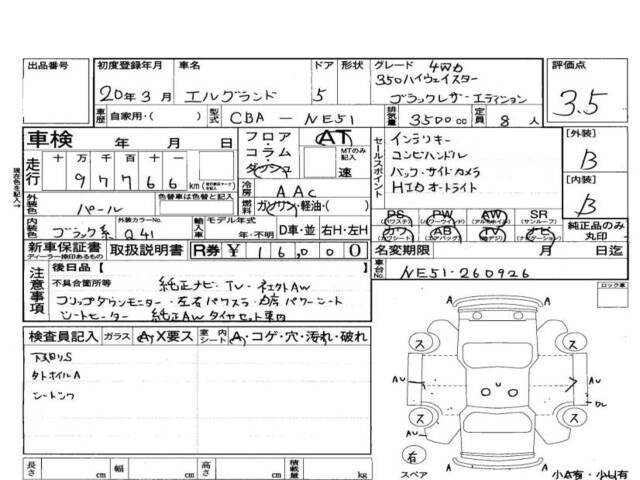 出品番号 初度登録年月 車名 ドア 形状 グレード 4WD 評価点
350ハイウェイスター
20年3月 エルグランド 5 ブラックレザーエディション 3.5
車歴 自家用・( ) 型式 CBA－NE51 排気量 3500cc 定員 8人
車検 年 月 日 フロア・コラム・ダッシュ AT MTのみ記入 速 セールスポイント インテリキー [外装]
走行 十万千百十 97766 km コンビハンドル B
冷房 AAC バック・サイドカメラ
外装色 パール 色替車は色替と記入 燃料 ガソリン・軽油・( ) HIDオートライト [内装]
B
内装色 ブラック系 外装カラーNo. Q41 輸入車 モデル年式 年・不明 D車・並 右H・左H
PS PW AW SR
カワシート AB TV ナビ 純正品のみ丸印
新車保証書 取扱説明書 R券 ¥ 16,000 名変期限 月 日迄
ディーラー捺印あるもの
注意事項 後日品【 】 車台No. NE51-260926
不具合箇所等 純正ナビ・TV・
フリップダウンモニター・左右パワスラ・
シートヒーター 純正AWタイヤセット車内
現在色を記入
ロック車
検査員記入 ガラス A,X要ス 室内シート A,コゲ・穴・汚れ・破れ
下廻りS
タホイルA
ス ス
AU AU
DL
ス ス
AU
右
スペア
長さ cm 幅 cm 高さ cm 積載量 kg 小A有・小U有